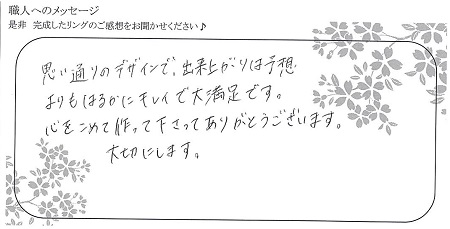 職人へのメッセージ
是非 完成したリングのご感想をお聞かせください♪
思い通りのデザインで、出来上がりは予想
よりもはるかにキレイで大満足です。
心をこめて作って下さってありがとうございます。
大切にします。